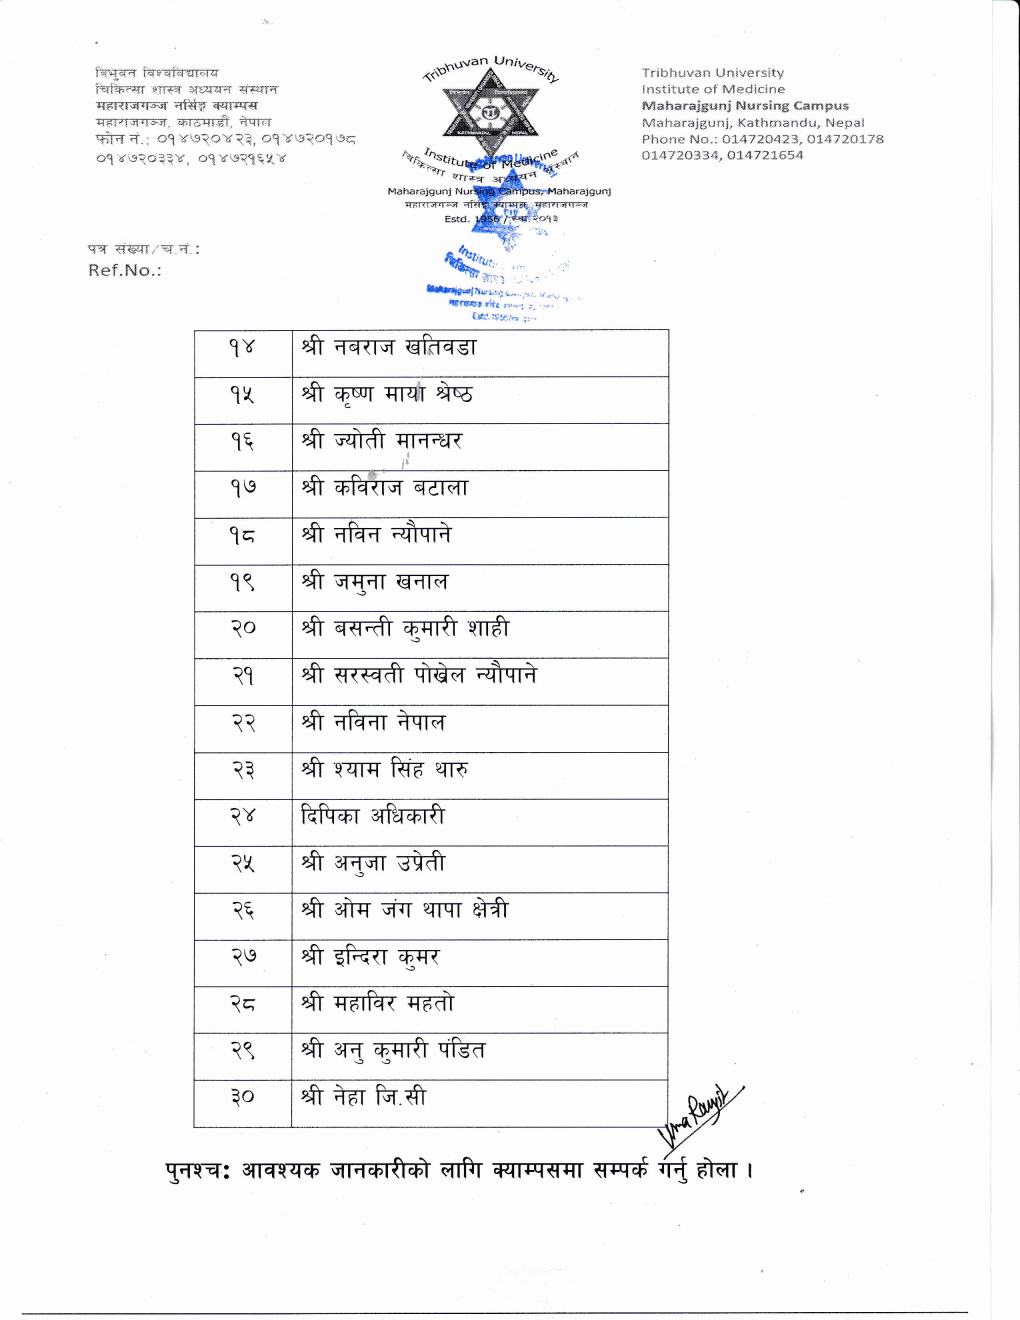 त्रिभुवन विश्वविद्यालय
चिकित्सा शास्त्र अध्ययन संस्थान
महाराजगञ्ज नर्सिङ्ग क्याम्पस
महाराजगञ्ज, काठमाडौं, नेपाल
फोन नं.: ०१४७२०४२३, ०१४७२०१७८
०१४७२०३३४, ०१४७२१६५४
Tribhuvan University
KATHMANDU NEPAL
Institute of Medicine
चिकित्सा शास्त्र अध्ययन संस्थान
Maharajgunj Nursing Campus, Maharajgunj
महाराजगञ्ज नर्सिङ्ग क्याम्पस, महाराजगञ्ज
Estd. 1956 / स्था. २०१३
Tribhuvan University
Institute of Medicine
Maharajgunj Nursing Campus
Maharajgunj, Kathmandu, Nepal
Phone No.: 014720423, 014720178
014720334, 014721654
पत्र संख्या/च.नं.:
Ref.No.:
Institute
चिकित्सा शास्त्र
Maharajgunj Nursing Campus
Estd. 1956
१४ श्री नबराज खतिवडा
१५ श्री कृष्ण माया श्रेष्ठ
१६ श्री ज्योती मानन्धर
१७ श्री कविराज बटाला
१८ श्री नविन न्यौपाने
१९ श्री जमुना खनाल
२० श्री बसन्ती कुमारी शाही
२१ श्री सरस्वती पोखेल न्यौपाने
२२ श्री नविना नेपाल
२३ श्री श्याम सिंह थारु
२४ दिपिका अधिकारी
२५ श्री अनुजा उप्रेती
२६ श्री ओम जंग थापा क्षेत्री
२७ श्री इन्दिरा कुमर
२८ श्री महाविर महतो
२९ श्री अनु कुमारी पंडित
३० श्री नेहा जि.सी
पुनश्च: आवश्यक जानकारीको लागि क्याम्पसमा सम्पर्क गर्नु होला ।